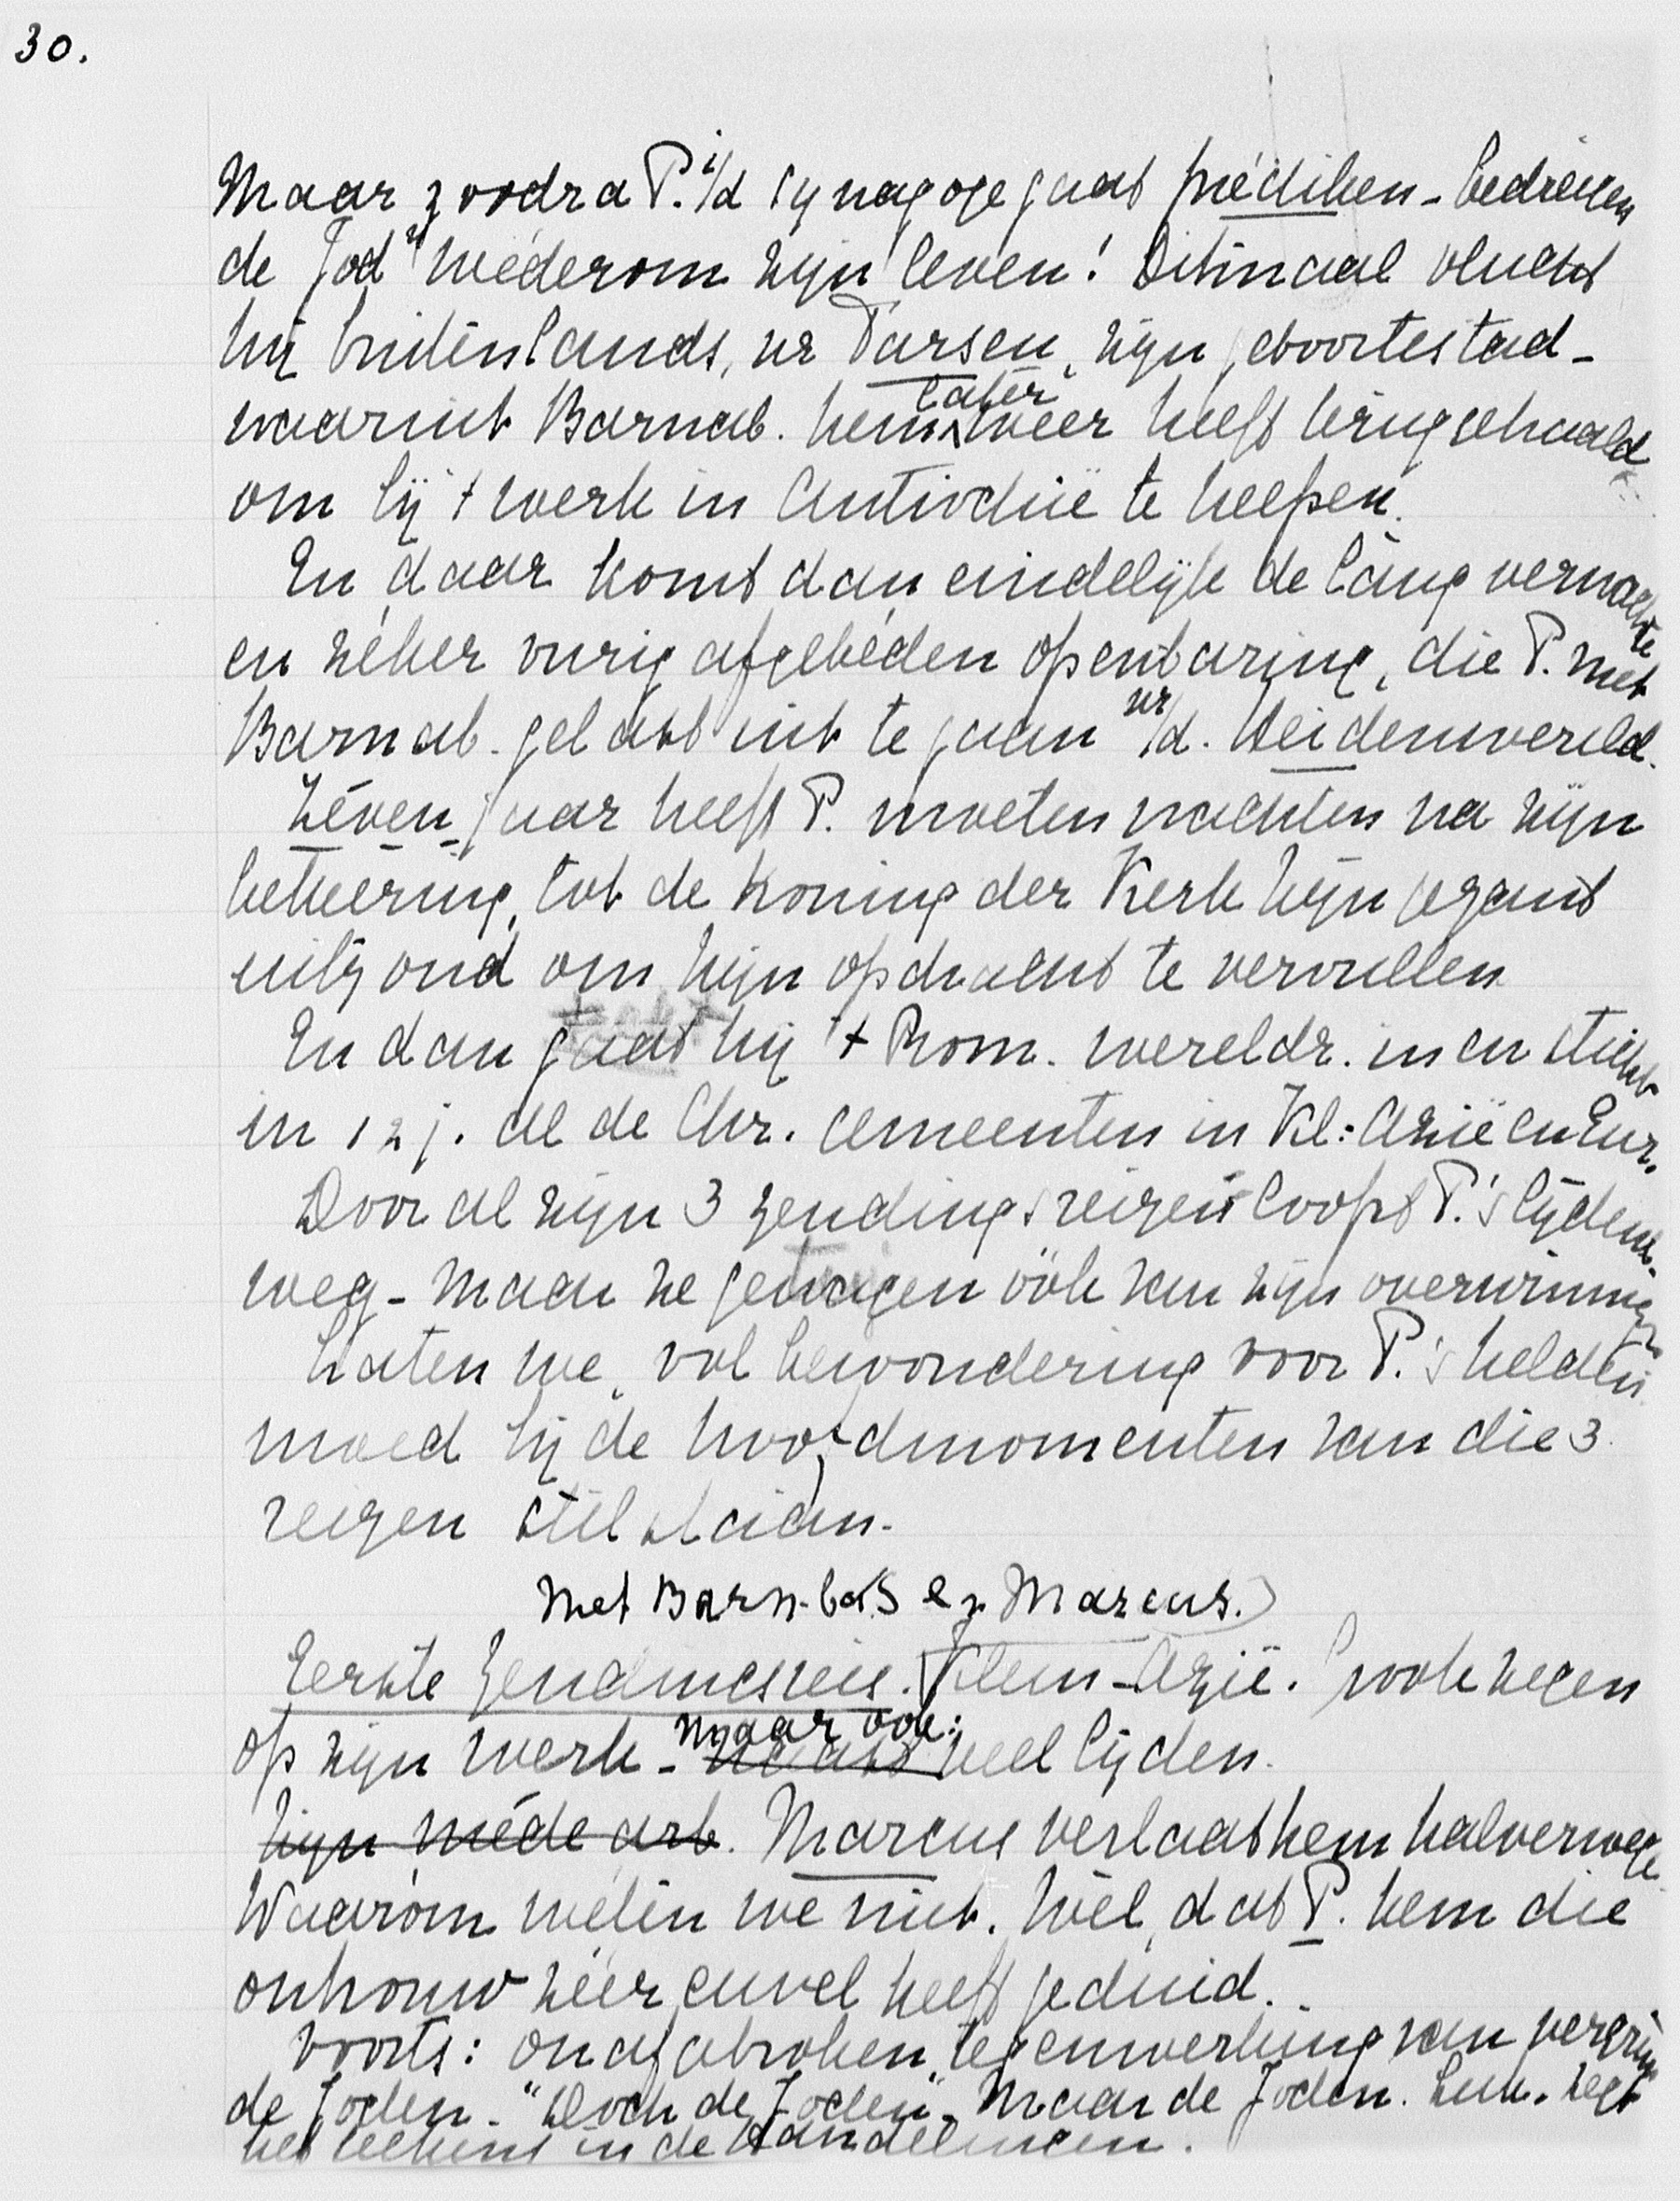 30.
Maar zoodra P. i/d synagoge gaat prédiken - bedreigen
de Jodn wéderom zijn leven! Ditmaal vlucht
hij buitenlands, nr Tarsen, zijn geboortestad -
waaruit Barnab. hem later weer heeft teruggehaald
om bij 't werk in Antiochië te helpen.
En daar komt dan eindelijk de lang verwachte
en zéker vurig afgebéden openbaring, die P. met
Barnab. gelast uit te gaan nr/d. Heidenwereld.
Zéven jaar heeft P. moeten wachten na zijn
bekeering, tot de Koning der Kerk Zijn gezant
uitzond om Zijn opdracht te vervullen.
En dan gaat hij 't Rom. wereldr. in en sticht
in 12 j. al de Chr. Gemeenten in Kl: Azië en Eur.
Door al zijn 3 zendingsreizen loopt P.'s lijdens-
weg - maar ze getuigen óók van zijn overwinningen
Laten we, vol bewondering voor P.'s helden
moed bij de hoofdmomenten van die 3
reizen stilstaan.
Met Barn-bas en Marcus.)
Eerste Zendingsreis. Klein-Azië. ook zegen
op zijn werk - maar ook: veel lijden.
Zijn méde arb. Marcus verlaat hem halverwege
Waaróm wéten we niet. Wèl, dat P. hem die
ontrouw zéér euvel heeft geduid.
Voorts: onafgebroken tegenwerking van
de Joden. "Doch de Joden", Maar de Joden. Luk. zegt
het telkens in de Handelingen.